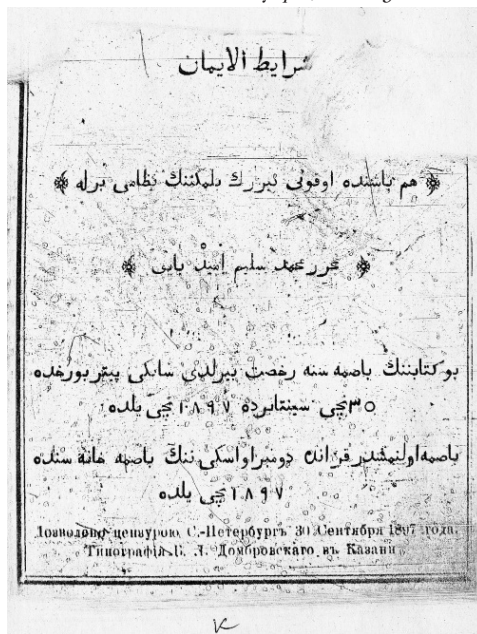 شرايط الايمان
هم باشنده اوقوتى تيزرك بلمكننك نظامى برله
محرر محمد سليم اميد بايى
بو كتابننك باصمه سنه رخصت بيرلدى سانكى پيتربورغده
٣٠نچى سينتابرده ١٨٩٧نچى يلده
باصمه اولنمشدر قزانده دومبراواسكى ننك باصمه خانه سنده
١٨٩٧نچى يلده
Дозволено цензурою С.-Петербургъ 30 Сентября 1897 года.
Типографія Б. Л. Домбровскаго въ Казани